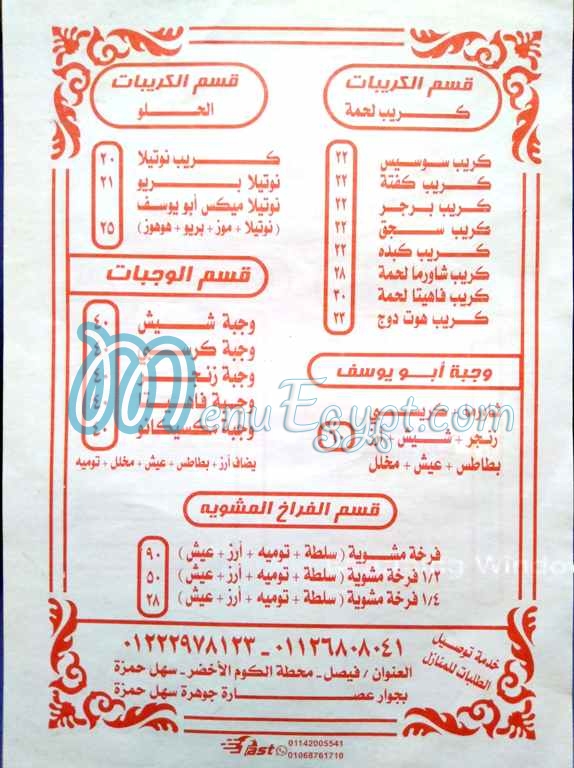 قسم الكريبات
كريب لحمة
كريب سوسيس ٢٢
كريب كفتة ٢٢
كريب برجر ٢٢
كريب سجق ٢٢
كريب كبده ٢٢
كريب شاورما لحمة ٢٨
كريب فاهيتا لحمة ٣٠
كريب هوت دوج ٢٣
قسم الكريبات
الحلو
كريب نوتيلا ٢٠
نوتيلا بريو ٢١
نوتيلا ميكس أبو يوسف
( نوتيلا + موز + بريو + هوهوز ) ٢٥
قسم الوجبات
وجبة شيش ٤٠
وجبة كرسبي
وجبة زنجر
وجبة فاهيتا
وجبة مكسيكانو
يضاف أرز + بطاطس + عيش + مخلل + توميه
وجبة أبو يوسف
زنجر + شيش + أرز
بطاطس + عيش + مخلل
MenuEgypt.com
قسم الفراخ المشويه
فرخة مشوية ( سلطة + توميه + أرز + عيش ) ٩٠
١/٢ فرخة مشوية ( سلطة + توميه + أرز + عيش ) ٥٠
١/٤ فرخة مشوية ( سلطة + توميه + أرز + عيش ) ٢٨
خدمة توصيل
الطلبات للمنازل
٠١١٢٦٨٠٨٠٤١ - ٠١٢٢٢٩٧٨١٢٣
العنوان / فيصل - محطة الكوم الأخضر - سهل حمزة
بجوار عصارة جوهرة سهل حمزة
Fast
01142005541
01068761710